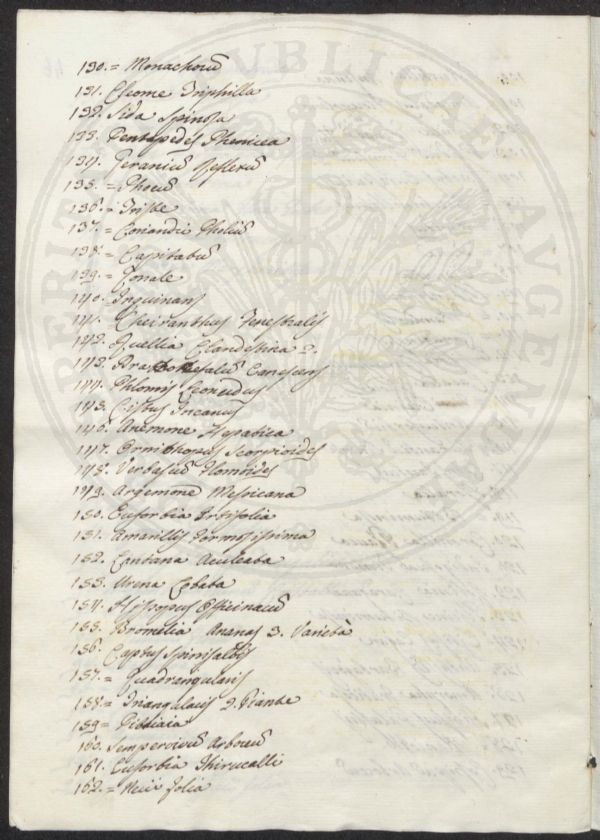 130. = Monachoru͂
131. Cleome Triphilla
132. Sida Spinosa
133. Pentapedes Phenicea
134. Geraniu͂ Zefleru͂
135. = Phoeu͂
136. = Triste
137. = Coriandri Pholiu͂
138. = Capitatu͂
139. = Zonale
140. Inquinans
141. Cheiranthus Fenestralis
142. Ruellia Clandestina 2.
143. Canescens
144. Phlomis Leonudus
145. Cistus Incanus
146. Anemone Hepatica
147. Ornithopus Scorpioides
148. Verbascu͂ Flomoides
149. Argemone Messicana
150. Euforbia Ortifolia
151. Amarillis Formosissima
152. Cantana Aculeata
153. Urena Lobata
154. Hissopus Officinaru͂
155. Bromelia Ananas 3. Varietà
156. Captus
157. = Quadrangularis
158. = Triangularis 2. Piante
159 =
160. Semperviviu͂ Arboreu͂
161. Euforbia Thirucalli
162. = Nerii folia
PERIS PUBLICAE AUGENDAE